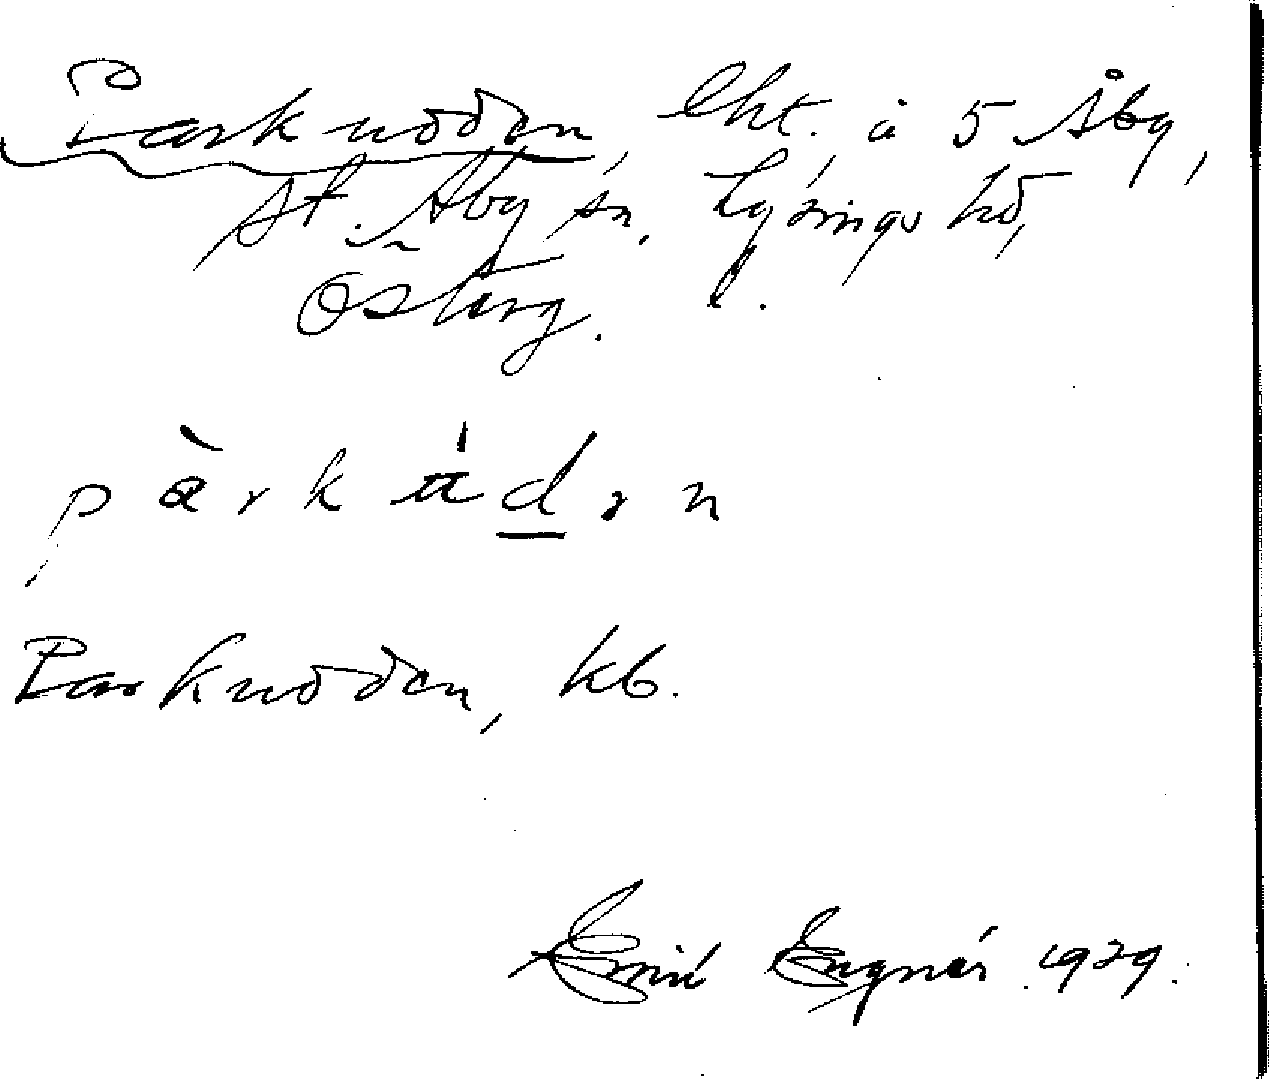 Parkudden, lht. å 5 Åby,
St. Åby sn, Lysings hd,
Österg. l.
pàrkúdən
Parkudden, kb.
Emil Engnér 1929.